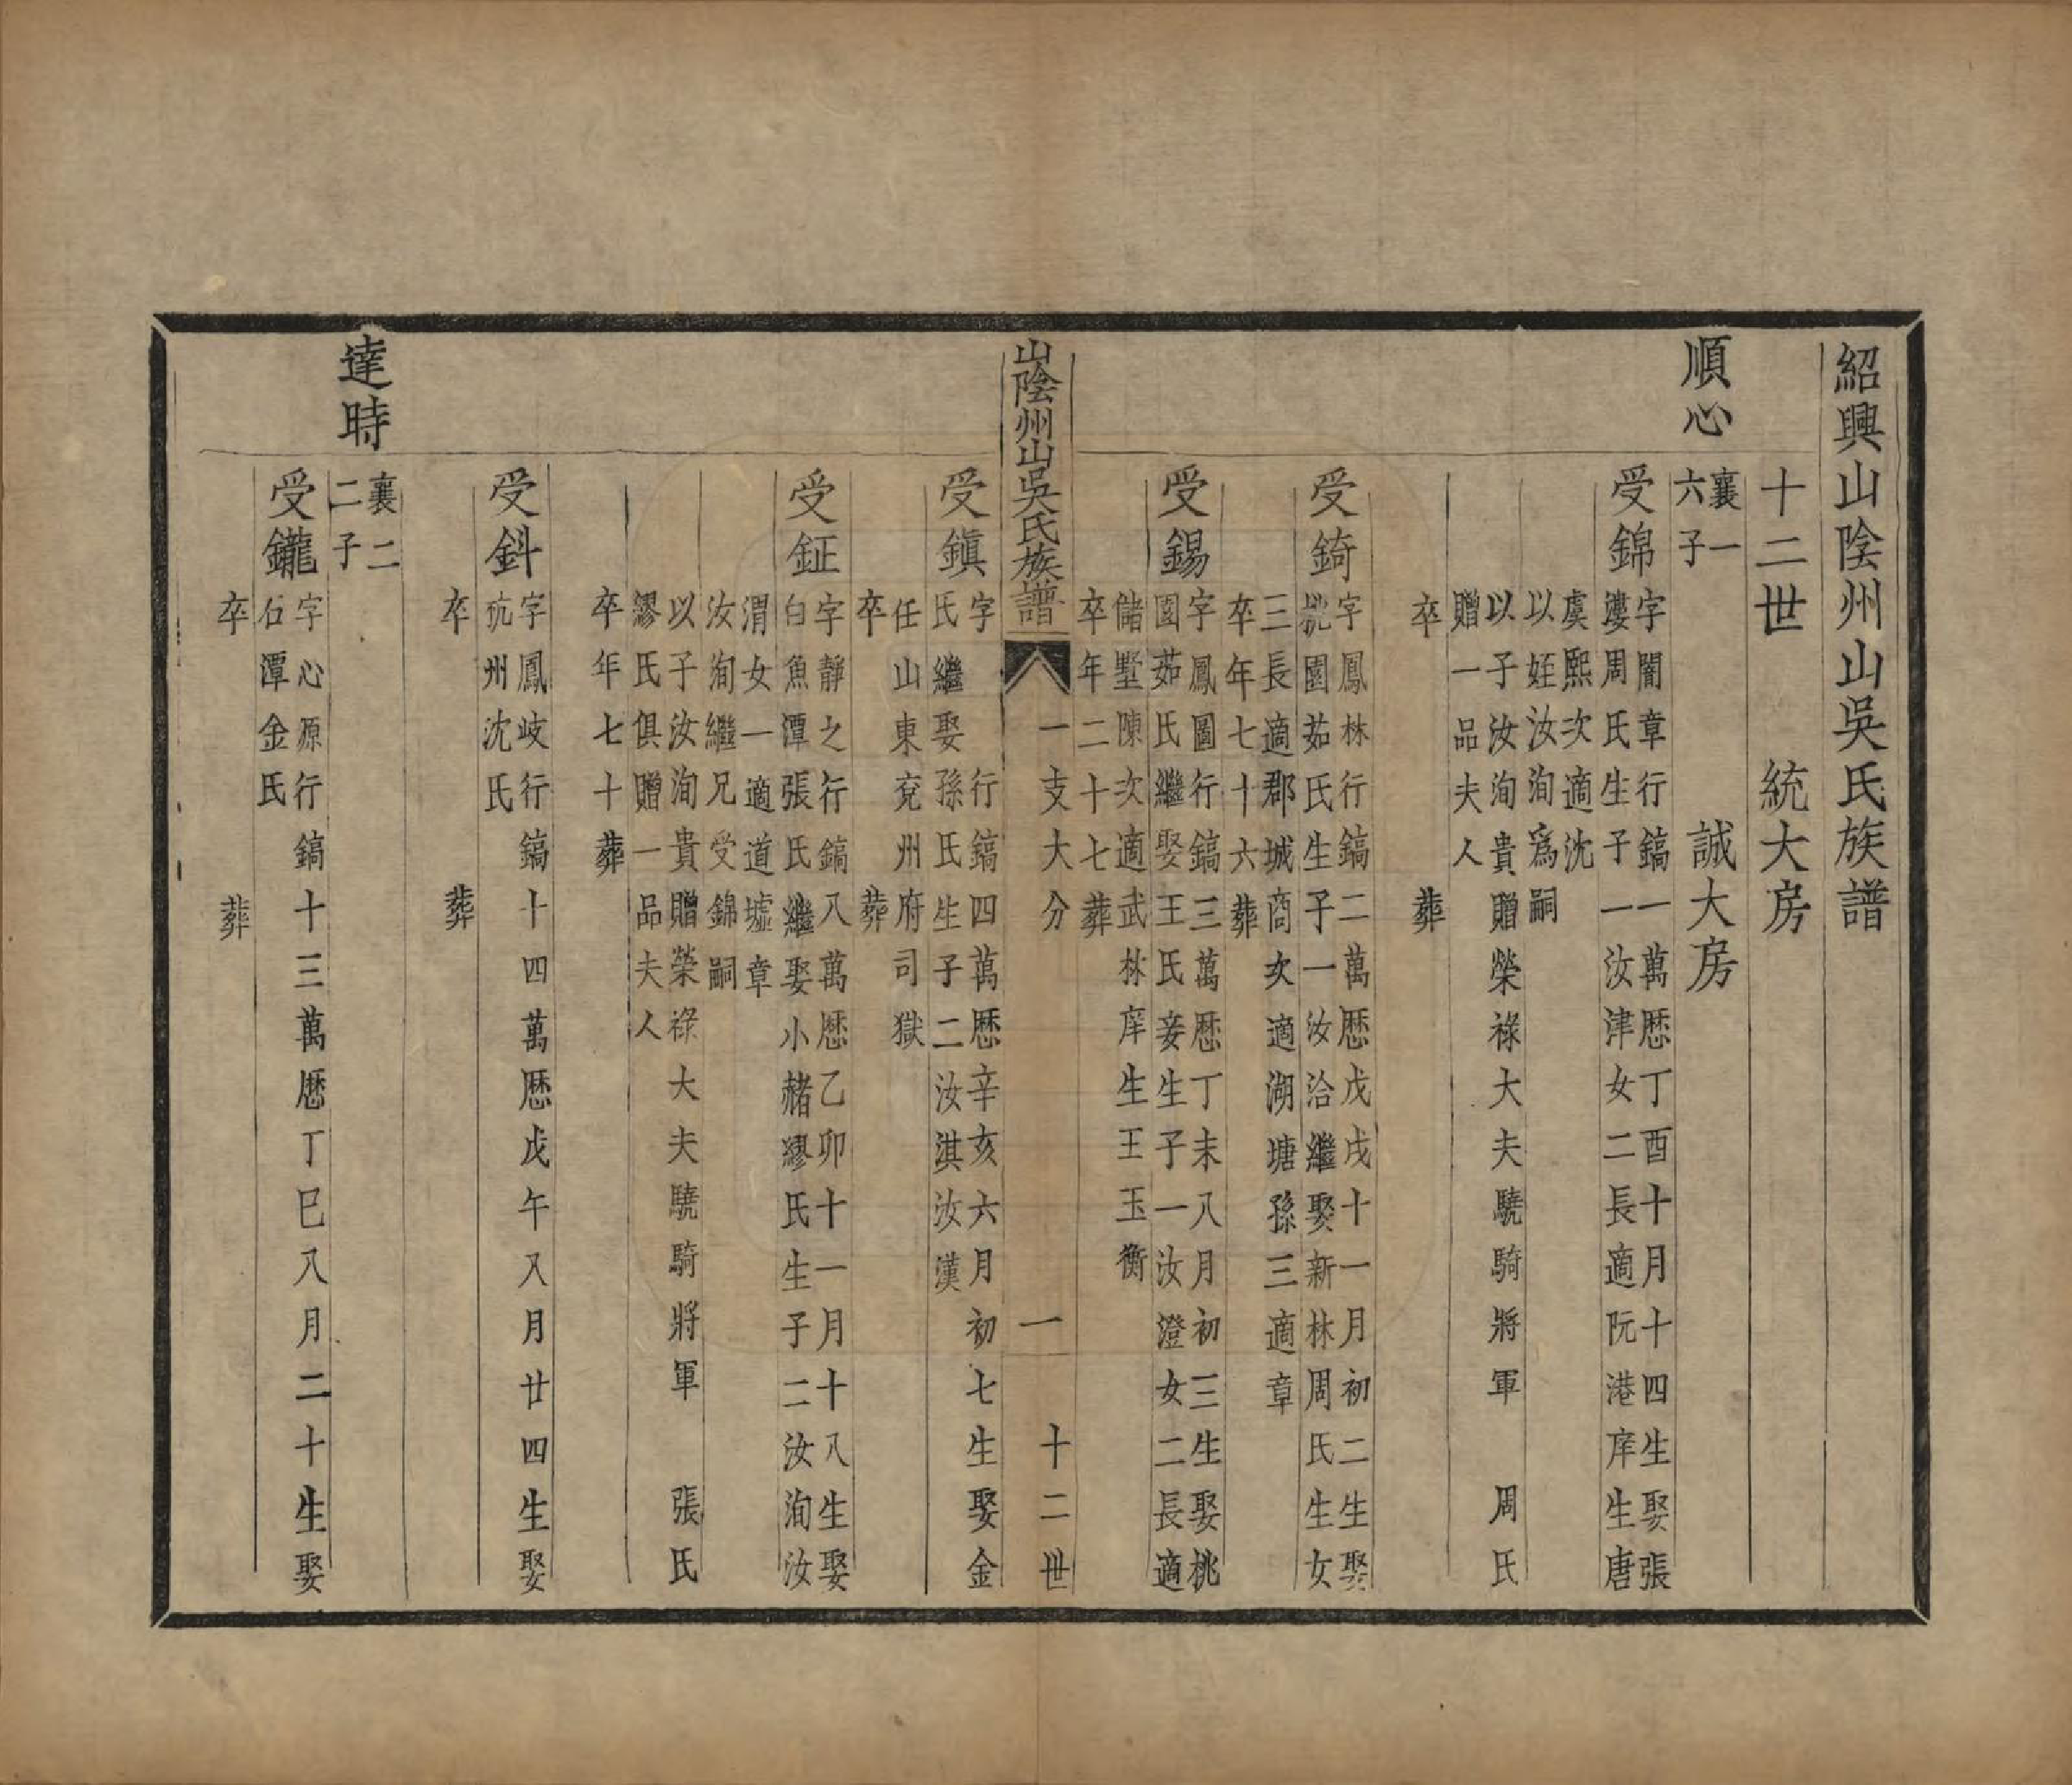 紹興山陰州山吳氏族譜
十二世 統大房
誠大房
順心
襄一
六子
受錦
字闇章行鎬一萬歷丁酉十月十四生娶張
漊周氏生子一汝津女二長適阮港庠生唐
虞熙次適沈
以姪汝洵為嗣
以子汝洵貴贈榮祿大夫驍騎將軍 周氏
贈一品夫人
卒 葬
受錡
字鳳林行鎬二萬歷戊戌十一月初二生娶
園茹氏生子一汝洽繼娶新林周氏生女
三長適郡城商次適湖塘孫三適章
卒年七十六葬
受錫
字鳳圖行鎬三萬歷丁未八月初三生娶桃
園茹氏繼娶王氏妾生子一汝澄女二長適
儲墅陳次適武林庠生王玉衡
卒年二十七葬
山陰州山吳氏族譜 一支大分 一 十二世
受鎮
字 行鎬四萬歷辛亥六月初七生娶金
氏繼娶孫氏生子二汝淇汝漢
任山東兗州府司獄
卒 葬
受鉦
字靜之行鎬八萬歷乙卯十一月十八生娶
白魚潭張氏繼娶小赭繆氏生子二汝洵汝
渭女一適道墟章
汝洵繼兄受錦嗣
以子汝洵貴贈榮祿大夫驍騎將軍 張氏
繆氏俱贈一品夫人
卒年七十葬
受鈄
字鳳岐行鎬十四萬歷戊午八月廿四生娶
杭州沈氏
卒 葬
達時
襄二
二子
受鑨
字心源行鎬十三萬歷丁巳八月二十生娶
石潭金氏
卒 葬